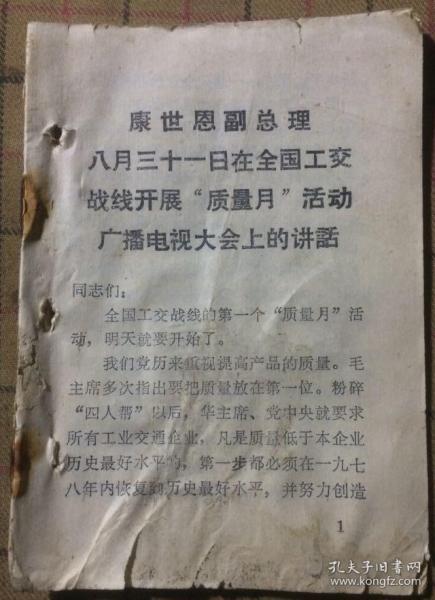 康世恩副总理
八月三十一日在全国工交
战线开展“质量月”活动
广播电视大会上的讲話
同志们：
全国工交战线的第一个“质量月”活
动，明天就要开始了。
我们党历来重视提高产品的质量。毛
主席多次指出要把质量放在第一位。粉碎
“四人帮”以后，华主席、党中央就要求
所有工业交通企业，凡是质量低于本企业
历史最好水平的，第一步都必须在一九七
八年内恢复到历史最好水平，并努力创造
1
孔夫子旧书网
www.kongfz.com